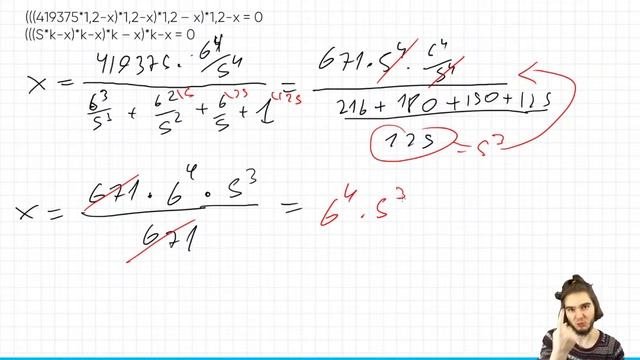 (((419375*1,2-x)*1,2-x)*1,2 – x)*1,2-x = 0
(((S*k-x)*k-x)*k – x)*k-x = 0
x = (419375 · 6⁴/5⁴) / (6³/5³ + 6²/5² + 6/5 + 1) = (671 · 5⁴ · 6⁴/5⁴) / ((216 + 180 + 150 + 125) / 125) = 5³
x = (671 · 6⁴ · 5³) / 671 = 6⁴ · 5³